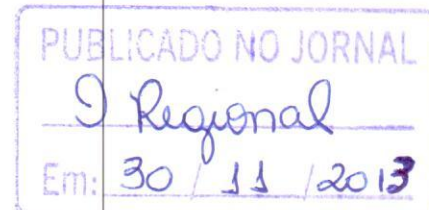 PUBLICADO NO JORNAL
O Regional
Em: 30 / 11 / 2013